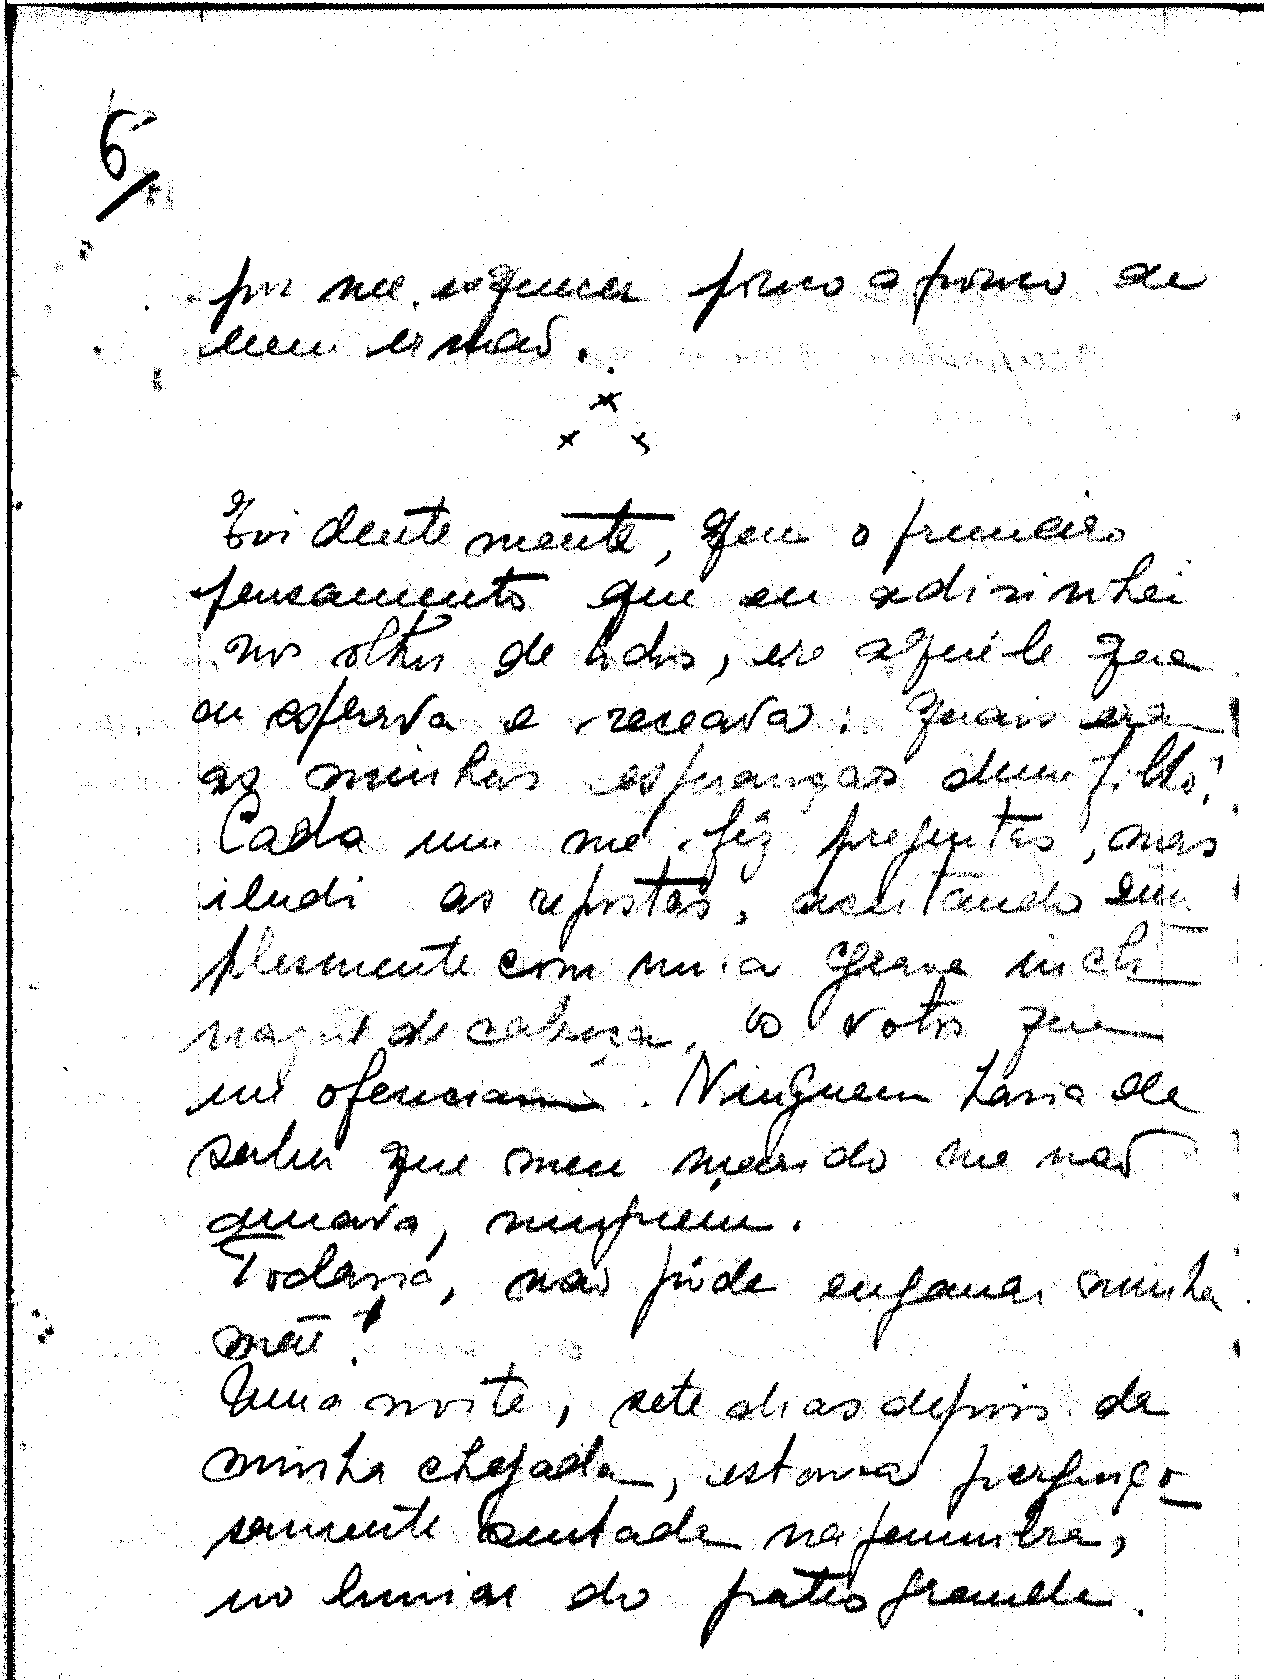 6/
por me esquecer pouco a pouco de
meu irmão.
x
x x
Evidentemente, que o primeiro
pensamento que eu adivinhei
nos olhos de todos, era aquêle que
eu esperava e receava: quais eram
as minhas esperanças dum filho?
Cada um me fez preguntas, mas
iludi as repostas, aceitando sim
plesmente com uma grave incli
nação de cabeça, os votos que
me ofereciam. Ninguem havia de
saber que meu marido me não
amava, ninguém.
Todavia, não pude enganar minha
mãe!
Uma noite, sete dias depois da
minha chegada, estava preguiço
samente sentada na penumbra,
no limiar do pateo grande.